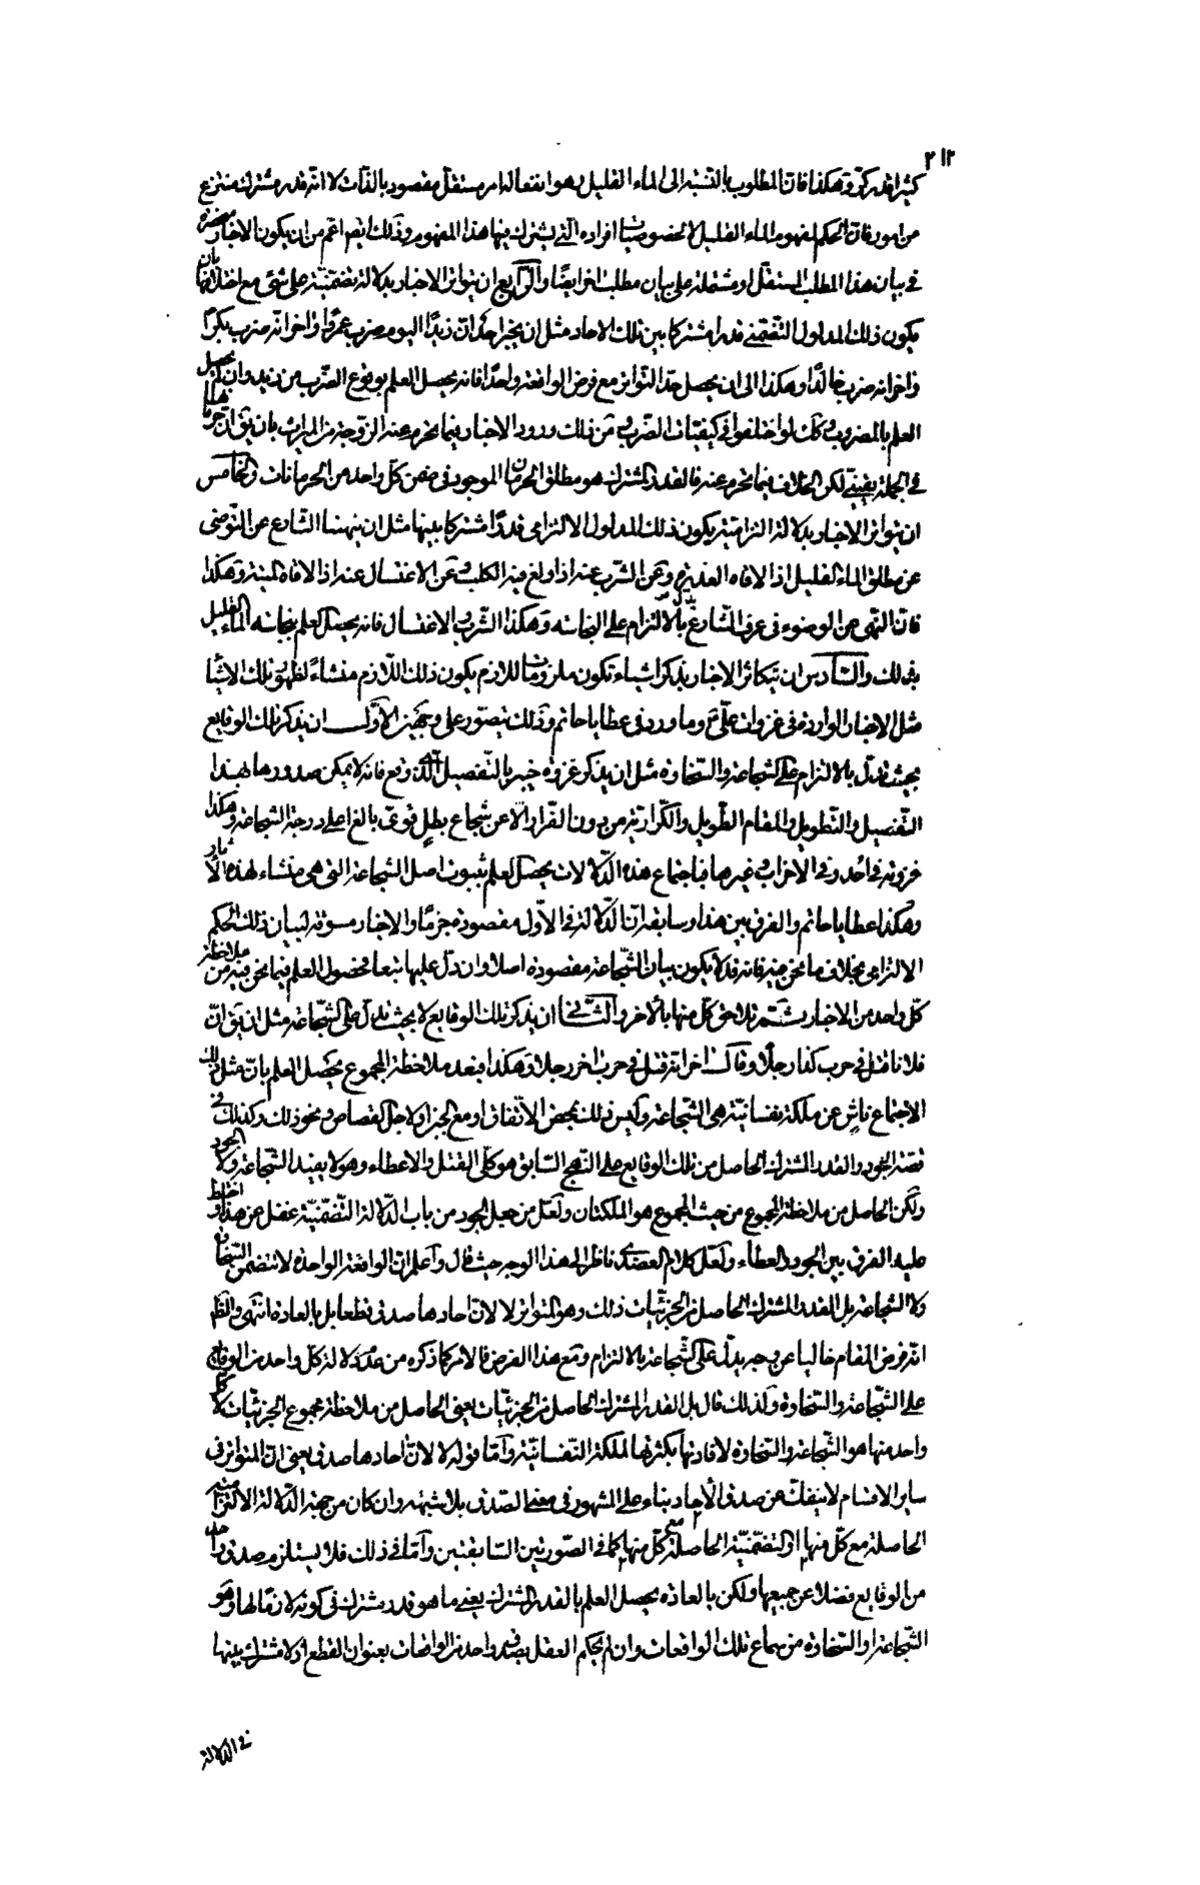 ٢١٢
كثيرا قدر كرّ وهكذا فان المطلوب بالنسبة الى الماء القليل وهو انفعاله امر مستقل مقصود بالذات لا انّه قدر مشترك منتزع
من امور فان الحكم لمفهوم الماء القليل لا لخصوصيات افراده التي يشترك فيها هذا المفهوم وذلك ايضا اعم من ان يكون الاخبار منحصرة
في بيان هذا المطلب المستقل او مشتملة على بيان مطلب اخر ايضًا والرّابع ان يتواتر الاخبار بدلالة تضمّنيّة على شئ مع اختلافها بان
يكون ذلك المدلول التضمّني قدرا مشتركا بين تلك الاحاد مثل ان يخبر احد ان زيدًا اليوم ضرب عمرًوا واخر انّه ضرب بكرًا
واخر انه ضرب خالدًا وهكذا الى ان يحصل حدّ التواتر مع فرض الواقعة واحدًا فانه يحصل العلم بوقوع الضّرب من زيد وان لم يحصل
العلم بالمضروب وكك لو اختلفوا في كيفيات الضّرب ومن ذلك ورود الاخبار فيما تحرم عنه الزوجة من الميراث بان يق ان حرمانها
في الجملة يقيني لكن الخلاف فيما تحرم عنه فالقدر المشترك هو مطلق الحرمان الموجود في ضمن كلّ واحد من الحرمانات والخامس
ان يتواتر الاخبار بدلالة التزامية بكون ذلك المدلول الالتزامى قدرًا مشتركا بينها مثل ان ينهينا الشارع عن التوضى
عن مطلق الماء القليل اذا لاقاه العذرة وعن الشرب عنه اذا ولغ فيه الكلب وعن الاغتسال عنه اذا لاقاه الميتة وهكذا
فان النهى عن الوضوء في عرف الشارع يدلّ بالالتزام على النجاسة وهكذا الشرب والاغتسال فانه يحصل العلم بنجاسة الماء القليل
بذلك والسّادس ان يتكاثر الاخبار بذكر اشياء تكون ملزومات للازم يكون ذلك اللّازم منشاءً لظهور تلك الاشيا
مثل الاخبار الواردة في غزوات علّي ع وما ورد في عطايا حاتم وذلك يتصوّر على وجهين الاوّل ان يذكر تلك الوقايع
بحيث تدل بالالتزام على الشجاعة والسّخاوة مثل ان يذكر غزوة خيبر بالتفصيل الّذى وقع فانه لا يمكن صدورها بهذا
التفصيل والتطويل والمقام الطّويل والكّرارية من دون الفرار الّا عن شجاع بطل قوىّ بالغ اعلى درجة الشجاعة وهكذا
غزوته في احُد وفي الاحزاب وغيرها فباجتماع هذه الدّلالات يحصل العلم بثبوت اصل الشجاعة التى هى منشاء لهذه الآثار
وهكذا عطايا حاتم والفرق بين هذا وسابقه ان الدّلالة في الاوّل مقصودة جزمًا والاخبار مسوقة لبيان ذلك الحكم
الالتزامى بخلاف ما نحن فيه فانه قد لا يكون بيان الشّجاعة مقصودة اصلا وان دلّ عليها تبعا فحصول العلم فيما نحن فيه من ملاحظة
كلّ واحد من الاخبار ثم تلاحق كلّ منها بالاخر والثانى ان يذكر تلك الوقايع لا بحيث تدل على الشّجاعة مثل ان يق ان
فلانا قتل في حرب كذا رجلًا وقال اخر انّه قتل في حرب اخر رجلا وهكذا فبعد ملاحظة المجموع يحصل العلم بانّ مثل ذلك
الاجتماع ناشٍ عن ملكة نفسانيّة هى الشّجاعة وليس ذلك بمحض الاتفاق او مع الجبن او لاجل القصاص ونحو ذلك وكذلك في
قصّة الجود والقدر المشترك الحاصل من تلك الوقايع على النهج السّابق هو كلّى القتل والاعطاء وهو لا يفيد الشّجاعة ولا الجود
ولكن الحاصل من ملاحظة المجموع من حيث المجموع هو الملكتان ولعّل من جعل الجود من باب الدّلالة التّضمّنيّة غفل عن هذا واختلط
عليه الفرق بين الجود والعطاء ولعّل كلام العضدى ناظر الى هذا الوجه حيث قال واعلم ان الواقعة الواحدة لا تتضمن السّخاوة
ولا الشجاعة بل القدر المشترك الحاصل من الجزئيّات ذلك وهو المتواتر لا لان احادها صدق قطعا بل بالعادة انتهى والظ
انّه فرض المقام خاليا عن وجه يدلّ على الشّجاعة بالالتزام ومع هذا الفرض فالامر كما ذكره من عدم دلالة كلّ واحد من الوقايع
على الشّجاعة والسّخاوة ولذلك قال بل القدر المشترك الحاصل من الجزئيّات يعنى الحاصل من ملاحظة مجموع الجزئيّات لا كلّ
واحد منها هو الشّجاعة والسّخاوة لافادتها بكثرتها الملكة النّفسانيّة وامّا قوله لا لانّ احادها صدق يعنى انّ المتواتر في
ساير الاقسام لا ينفك عن صدق الاحاد بناء على المشهور في معنى الصّدق بلا شبهة وان كان من جهة الدّلالة الالتزامية
الحاصلة مع كلّ منها او التضمّنيّة الحاصلة مع كلّ منها كما في الصّورتين السّابقتين وامّا في ذلك فلا يستلزم صدق واحد
من الوقايع فضلا عن جميعها ولكن بالعادة يحصل العلم بالقدر المشترك يعنى ما هو قدر مشترك في كونه لازمًا لها وهو
الشّجاعة او السّخاوة من سماع تلك الواقعات وان لم يحكم العقل بصدق واحد من الواقعات بعنوان القطع اذ لا مشترك بينها
في الدلالة